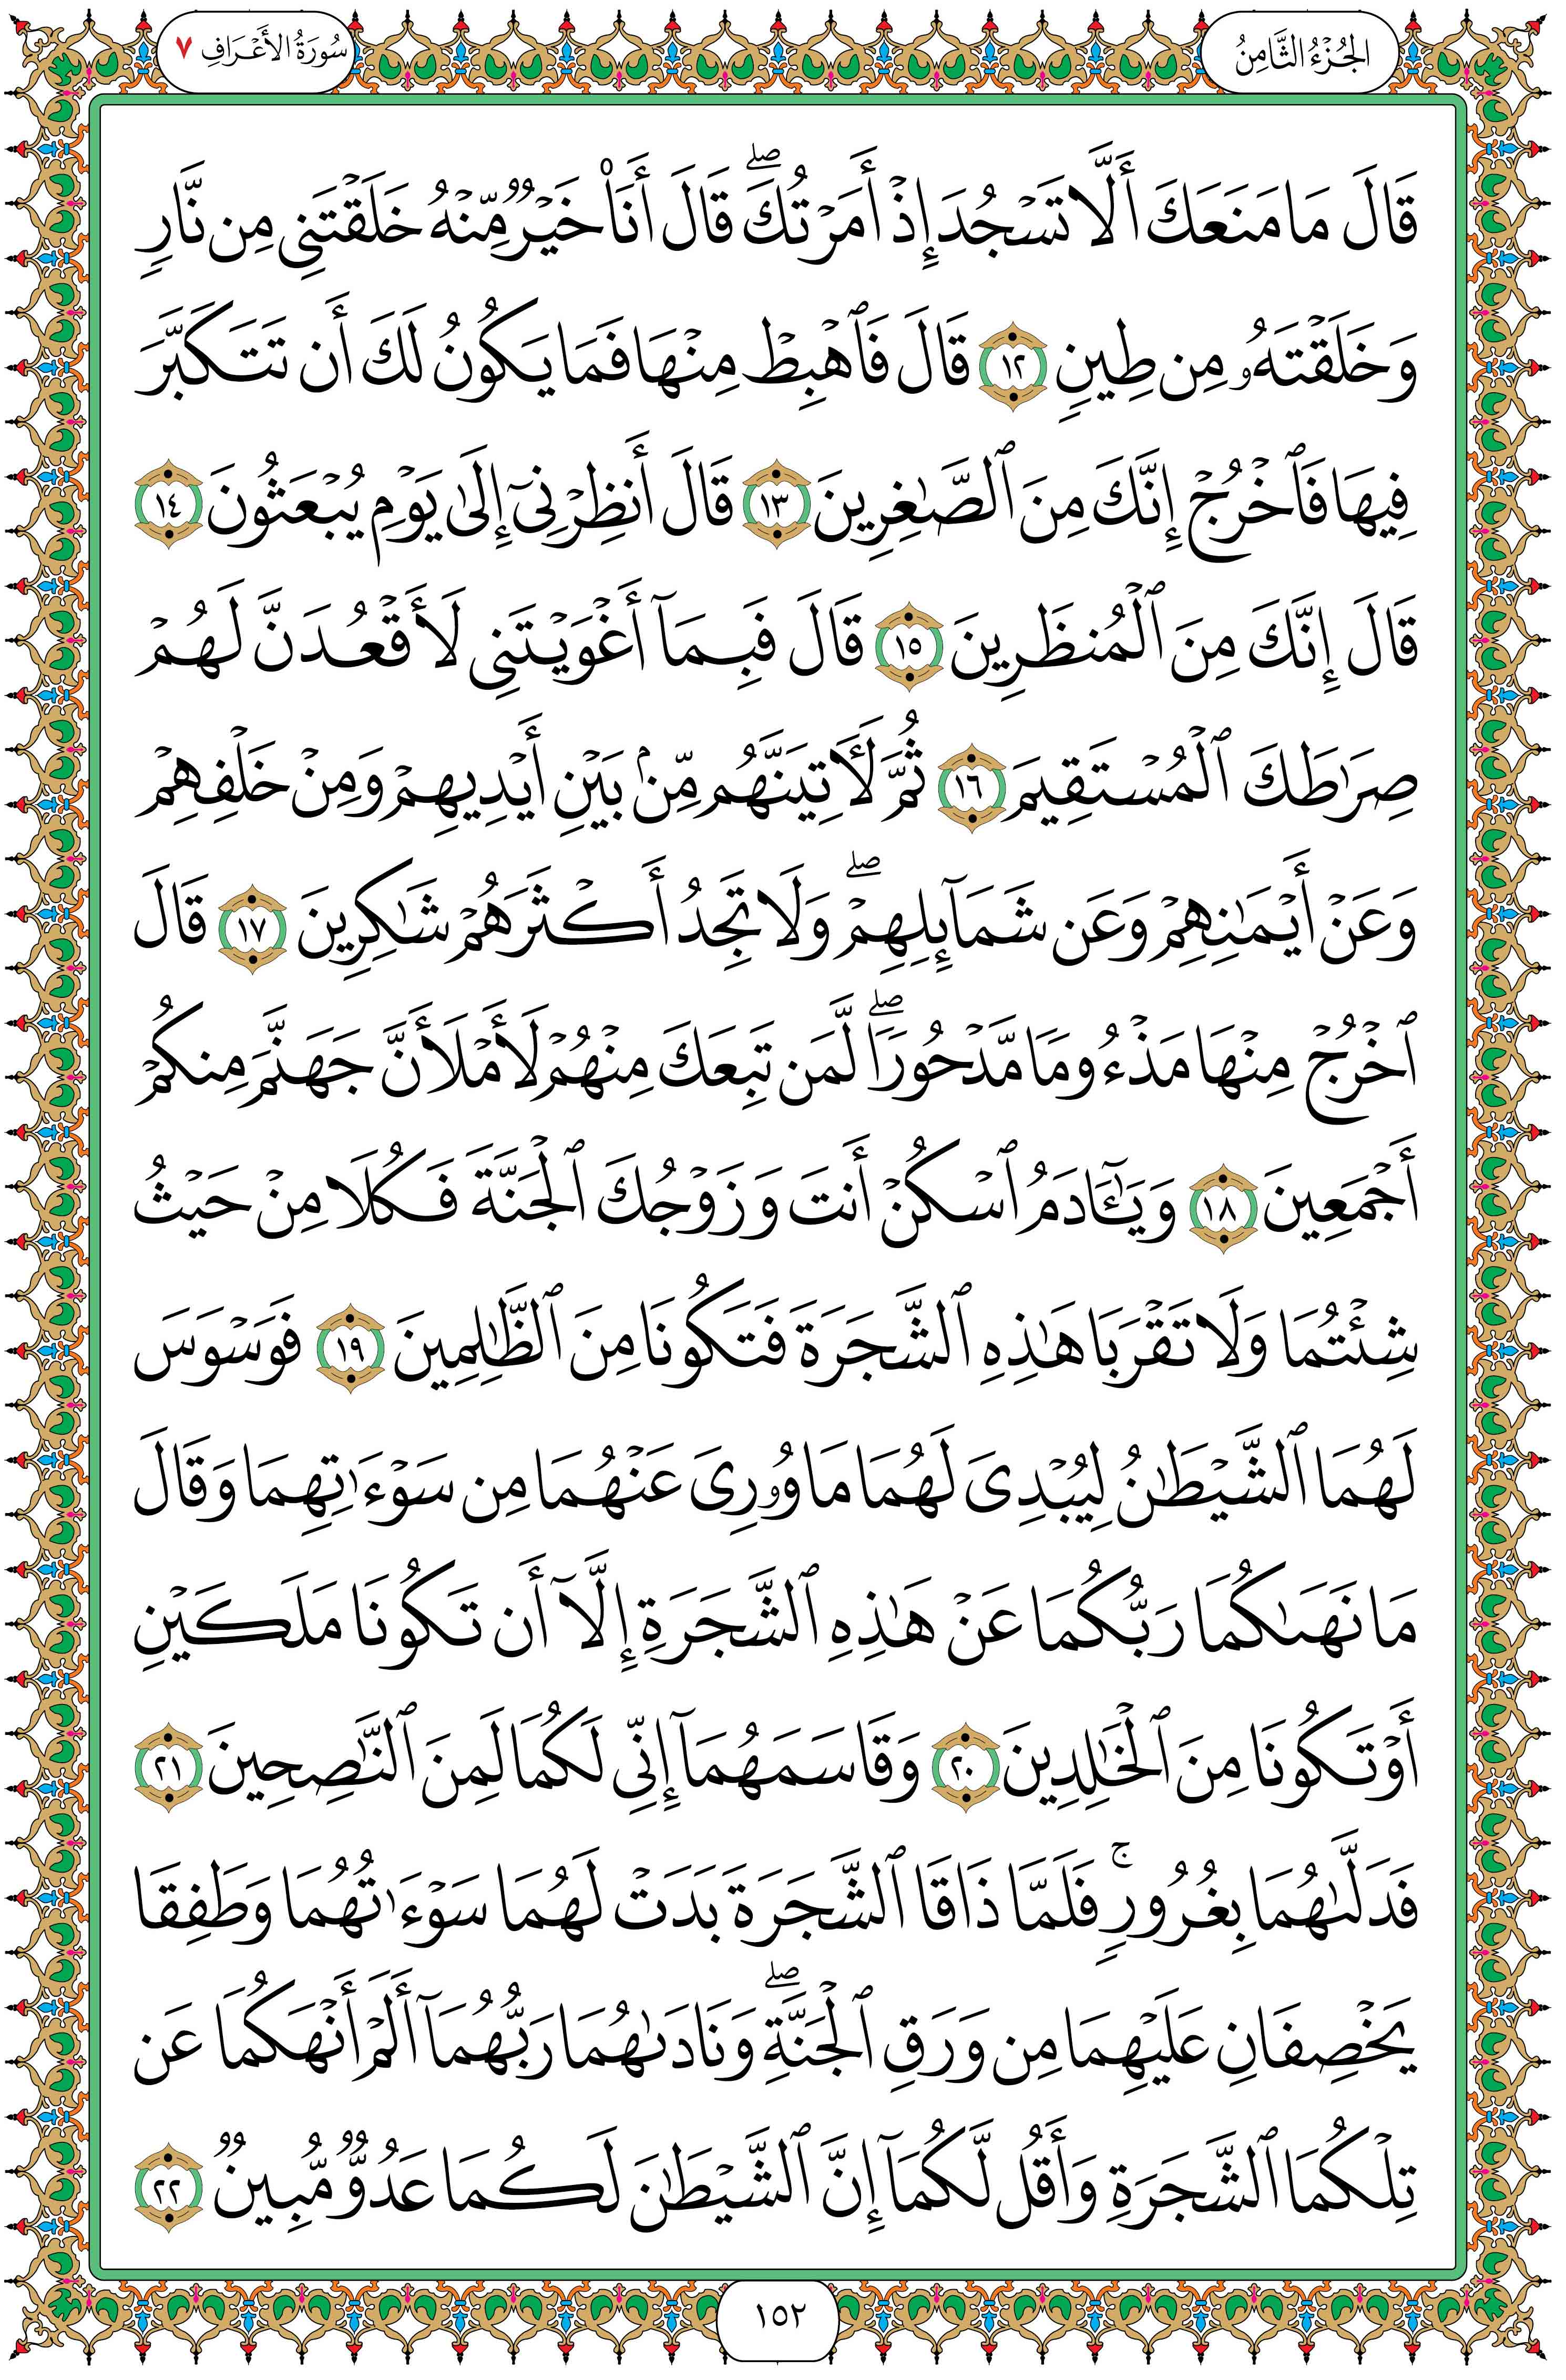 الجُزْءُ الثَّامِنُ
سُورَةُ الأَعْرَافِ ٧
قَالَ مَا مَنَعَكَ أَلَّا تَسْجُدَ إِذْ أَمَرْتُكَ ۖ قَالَ أَنَا۠ خَيْرٌ مِّنْهُ خَلَقْتَنِى مِن نَّارٍ
وَخَلَقْتَهُۥ مِن طِينٍ ١٢ قَالَ فَٱهْبِطْ مِنْهَا فَمَا يَكُونُ لَكَ أَن تَتَكَبَّرَ
فِيهَا فَٱخْرُجْ إِنَّكَ مِنَ ٱلصَّٰغِرِينَ ١٣ قَالَ أَنظِرْنِىٓ إِلَىٰ يَوْمِ يُبْعَثُونَ ١٤
قَالَ إِنَّكَ مِنَ ٱلْمُنظَرِينَ ١٥ قَالَ فَبِمَآ أَغْوَيْتَنِى لَأَقْعُدَنَّ لَهُمْ
صِرَٰطَكَ ٱلْمُسْتَقِيمَ ١٦ ثُمَّ لَـَٔاتِيَنَّهُم مِّنۢ بَيْنِ أَيْدِيهِمْ وَمِنْ خَلْفِهِمْ
وَعَنْ أَيْمَٰنِهِمْ وَعَن شَمَآئِلِهِمْ ۖ وَلَا تَجِدُ أَكْثَرَهُمْ شَٰكِرِينَ ١٧ قَالَ
ٱخْرُجْ مِنْهَا مَذْءُومًا مَّدْحُورًا ۖ لَّمَن تَبِعَكَ مِنْهُمْ لَأَمْلَأَنَّ جَهَنَّمَ مِنكُمْ
أَجْمَعِينَ ١٨ وَيَٰٓـَٔادَمُ ٱسْكُنْ أَنتَ وَزَوْجُكَ ٱلْجَنَّةَ فَكُلَا مِنْ حَيْثُ
شِئْتُمَا وَلَا تَقْرَبَا هَٰذِهِ ٱلشَّجَرَةَ فَتَكُونَا مِنَ ٱلظَّٰلِمِينَ ١٩ فَوَسْوَسَ
لَهُمَا ٱلشَّيْطَٰنُ لِيُبْدِىَ لَهُمَا مَا وُۥرِىَ عَنْهُمَا مِن سَوْءَٰتِهِمَا وَقَالَ
مَا نَهَىٰكُمَا رَبُّكُمَا عَنْ هَٰذِهِ ٱلشَّجَرَةِ إِلَّآ أَن تَكُونَا مَلَكَيْنِ
أَوْ تَكُونَا مِنَ ٱلْخَٰلِدِينَ ٢٠ وَقَاسَمَهُمَآ إِنِّى لَكُمَا لَمِنَ ٱلنَّٰصِحِينَ ٢١
فَدَلَّىٰهُمَا بِغُرُورٍ ۚ فَلَمَّا ذَاقَا ٱلشَّجَرَةَ بَدَتْ لَهُمَا سَوْءَٰتُهُمَا وَطَفِقَا
يَخْصِفَانِ عَلَيْهِمَا مِن وَرَقِ ٱلْجَنَّةِ ۖ وَنَادَىٰهُمَا رَبُّهُمَآ أَلَمْ أَنْهَكُمَا عَن
تِلْكُمَا ٱلشَّجَرَةِ وَأَقُل لَّكُمَآ إِنَّ ٱلشَّيْطَٰنَ لَكُمَا عَدُوٌّ مُّبِينٌ ٢٢
١٥٢